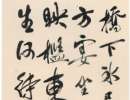 橋下水
方宴坐
映檻東
生何待